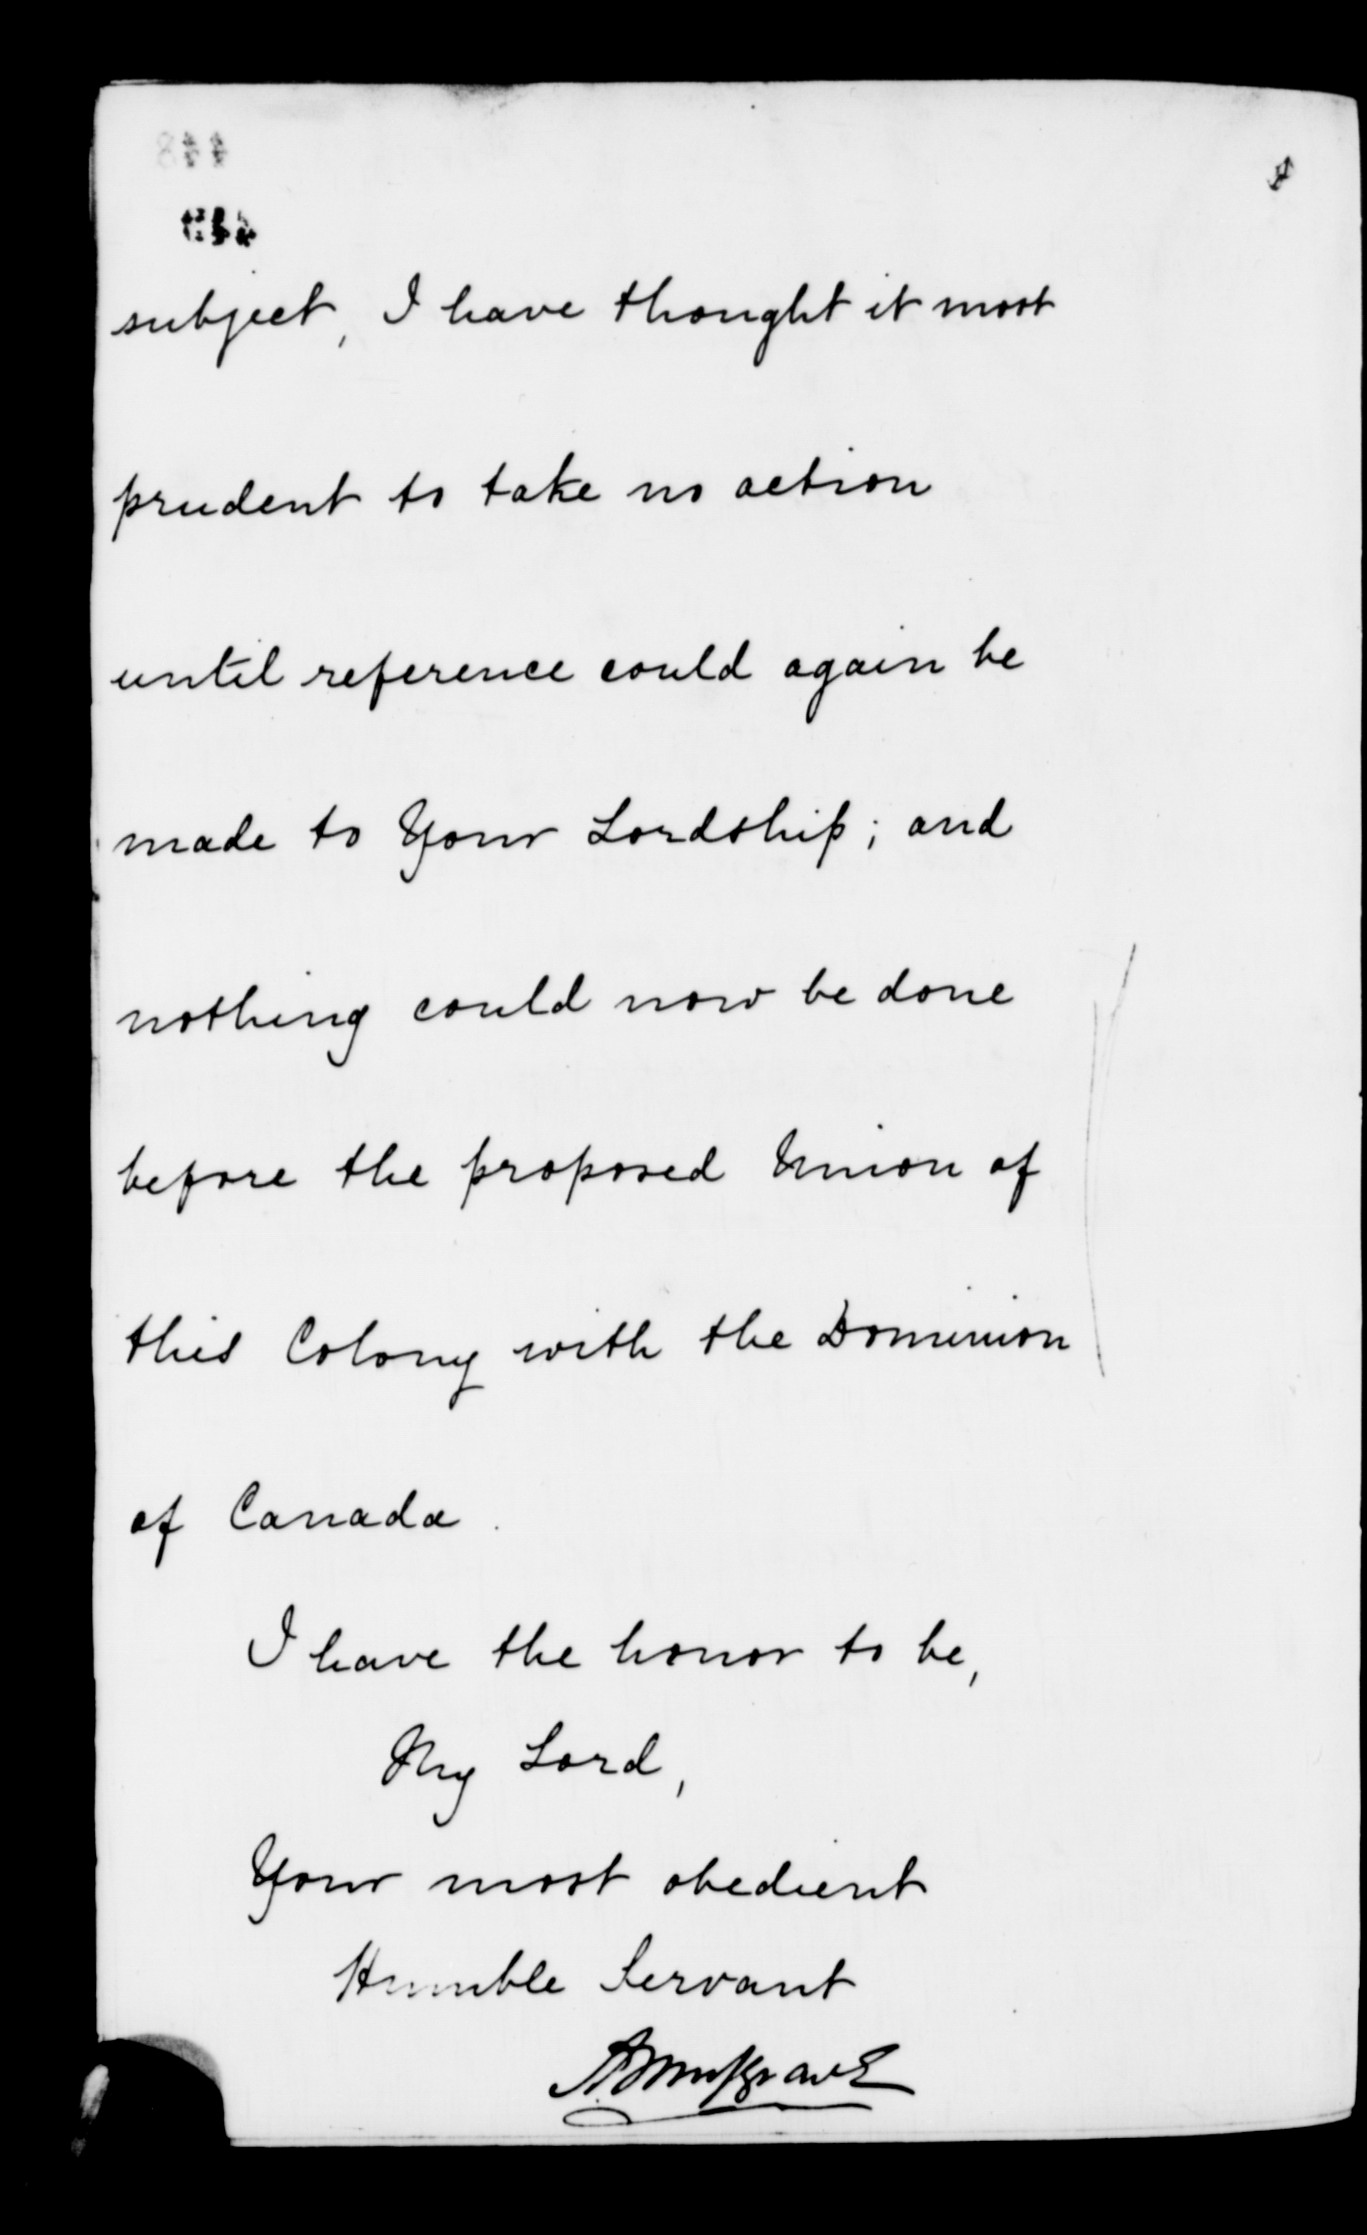 subject, I have thought it most
prudent to take no action
until reference could again be
made to Your Lordship; and
nothing could now be done
before the proposed Union of
this Colony with the Dominion
of Canada.
I have the honor to be,
My Lord,
Your most obedient
Humble Servant
A Musgrave